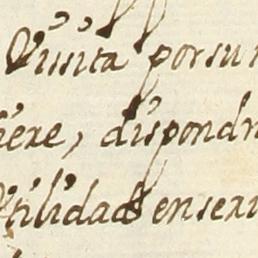 Visita por su
iere, dispondr
Vtilidad en serv